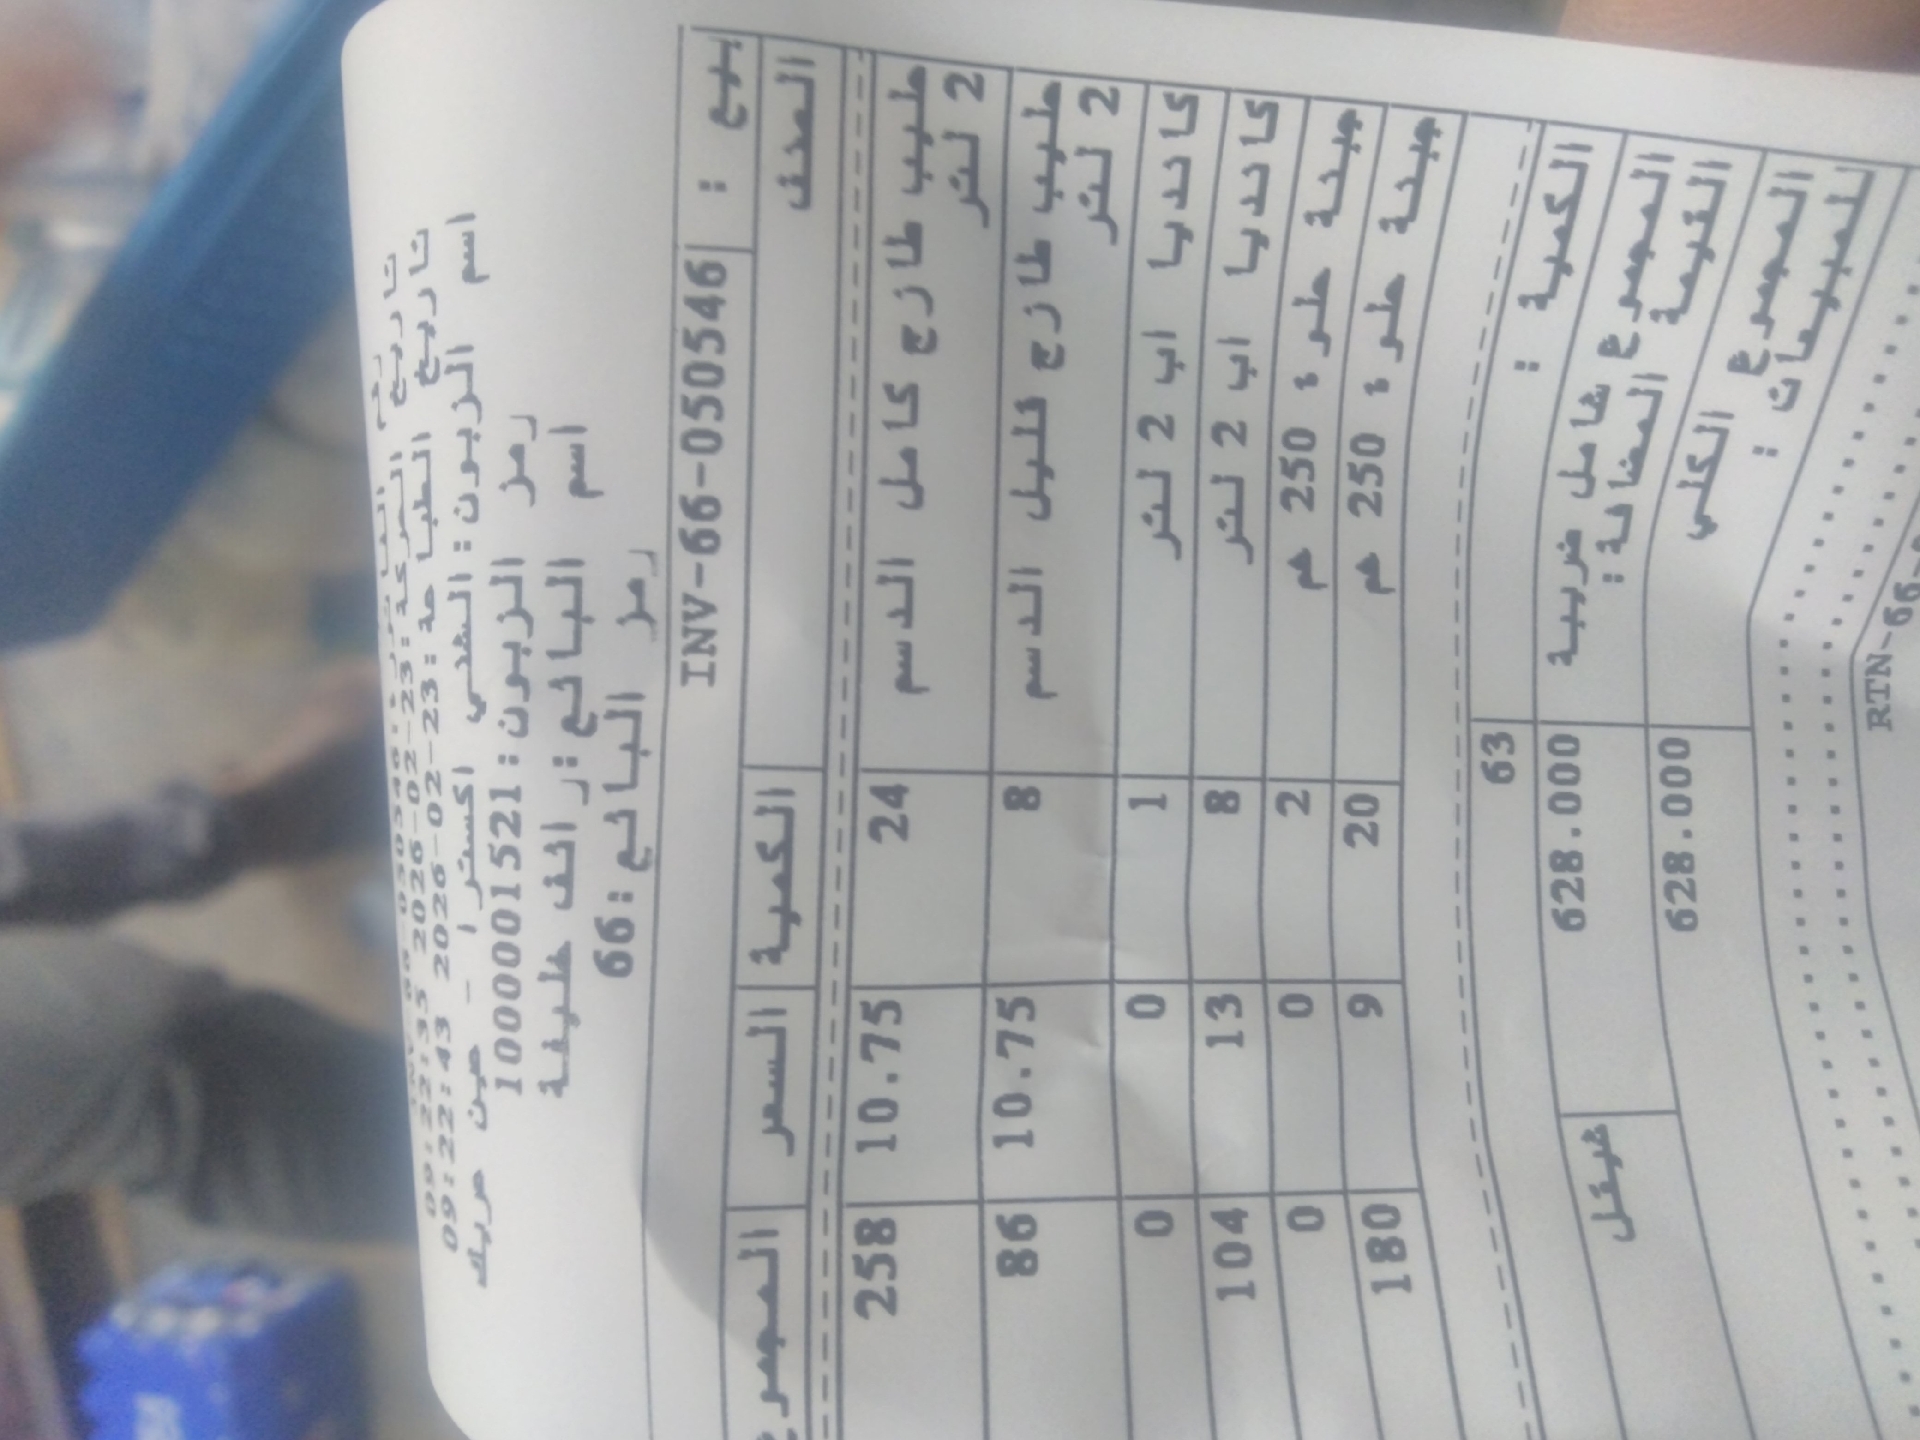 تاريخ الحركة: 23-02-2026 09:22:35
تاريخ الطباعة: 23-02-2026 09:22:43
اسم الزبون: الشني اكسترا -
رمز الزبون: 1000001521
اسم البائع: رائف خليفة
رمز البائع: 66
بيع : INV-66-050546
الصنف الكمية السعر المجموع
حليب طازج كامل الدسم 24 10.75 258
2 لتر
حليب طازج قليل الدسم 8 10.75 86
2 لتر
كاديا اب 2 لتر 1 0 0
كاديا اب 2 لتر 8 13 104
جبدة حلوة 250 غم 2 0 0
جبدة حلوة 250 غم 20 9 180
الكمية : 63
المجموع شامل ضريبة 628.000 شيقل
القيمة المضافة:
المجموع الكلي 628.000
للمبيعات :
RTN-66-